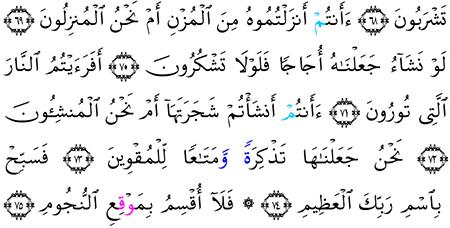 تَشْرَبُونَ ﴿٦٨﴾ ءَأَنتُمْ أَنزَلْتُمُوهُ مِنَ ٱلْمُزْنِ أَمْ نَحْنُ ٱلْمُنزِلُونَ ﴿٦٩﴾
لَوْ نَشَآءُ جَعَلْنَـٰهُ أُجَاجًا فَلَوْلَا تَشْكُرُونَ ﴿٧٠﴾ أَفَرَءَيْتُمُ ٱلنَّارَ
ٱلَّتِى تُورُونَ ﴿٧١﴾ ءَأَنتُمْ أَنشَأْتُمْ شَجَرَتَهَآ أَمْ نَحْنُ ٱلْمُنشِـُٔونَ
﴿٧٢﴾ نَحْنُ جَعَلْنَـٰهَا تَذْكِرَةً وَّمَتَـٰعًا لِّلْمُقْوِينَ ﴿٧٣﴾ فَسَبِّحْ
بِٱسْمِ رَبِّكَ ٱلْعَظِيمِ ﴿٧٤﴾ ۞ فَلَآ أُقْسِمُ بِمَوْقِعِ ٱلنُّجُومِ ﴿٧٥﴾